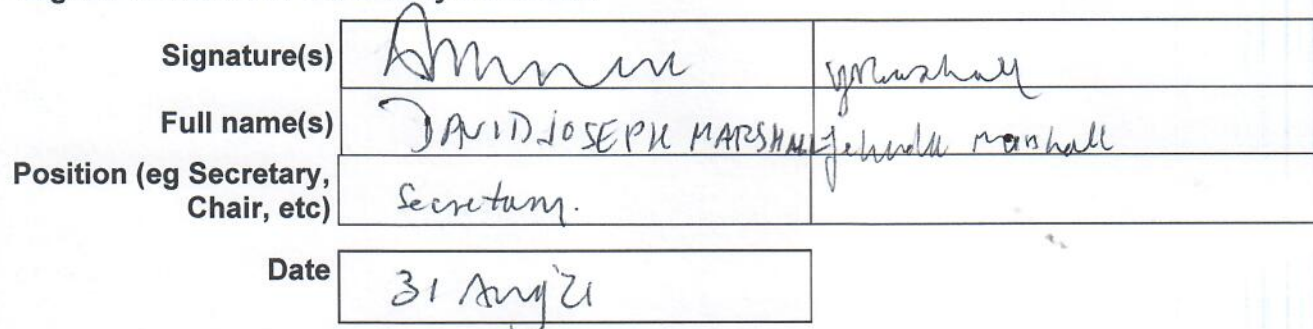 Signature(s)
Full name(s) DAVID JOSEPH MARSHALL Marshall
Position (eg Secretary,
Chair, etc) Secretary.
Date 31 Aug 21